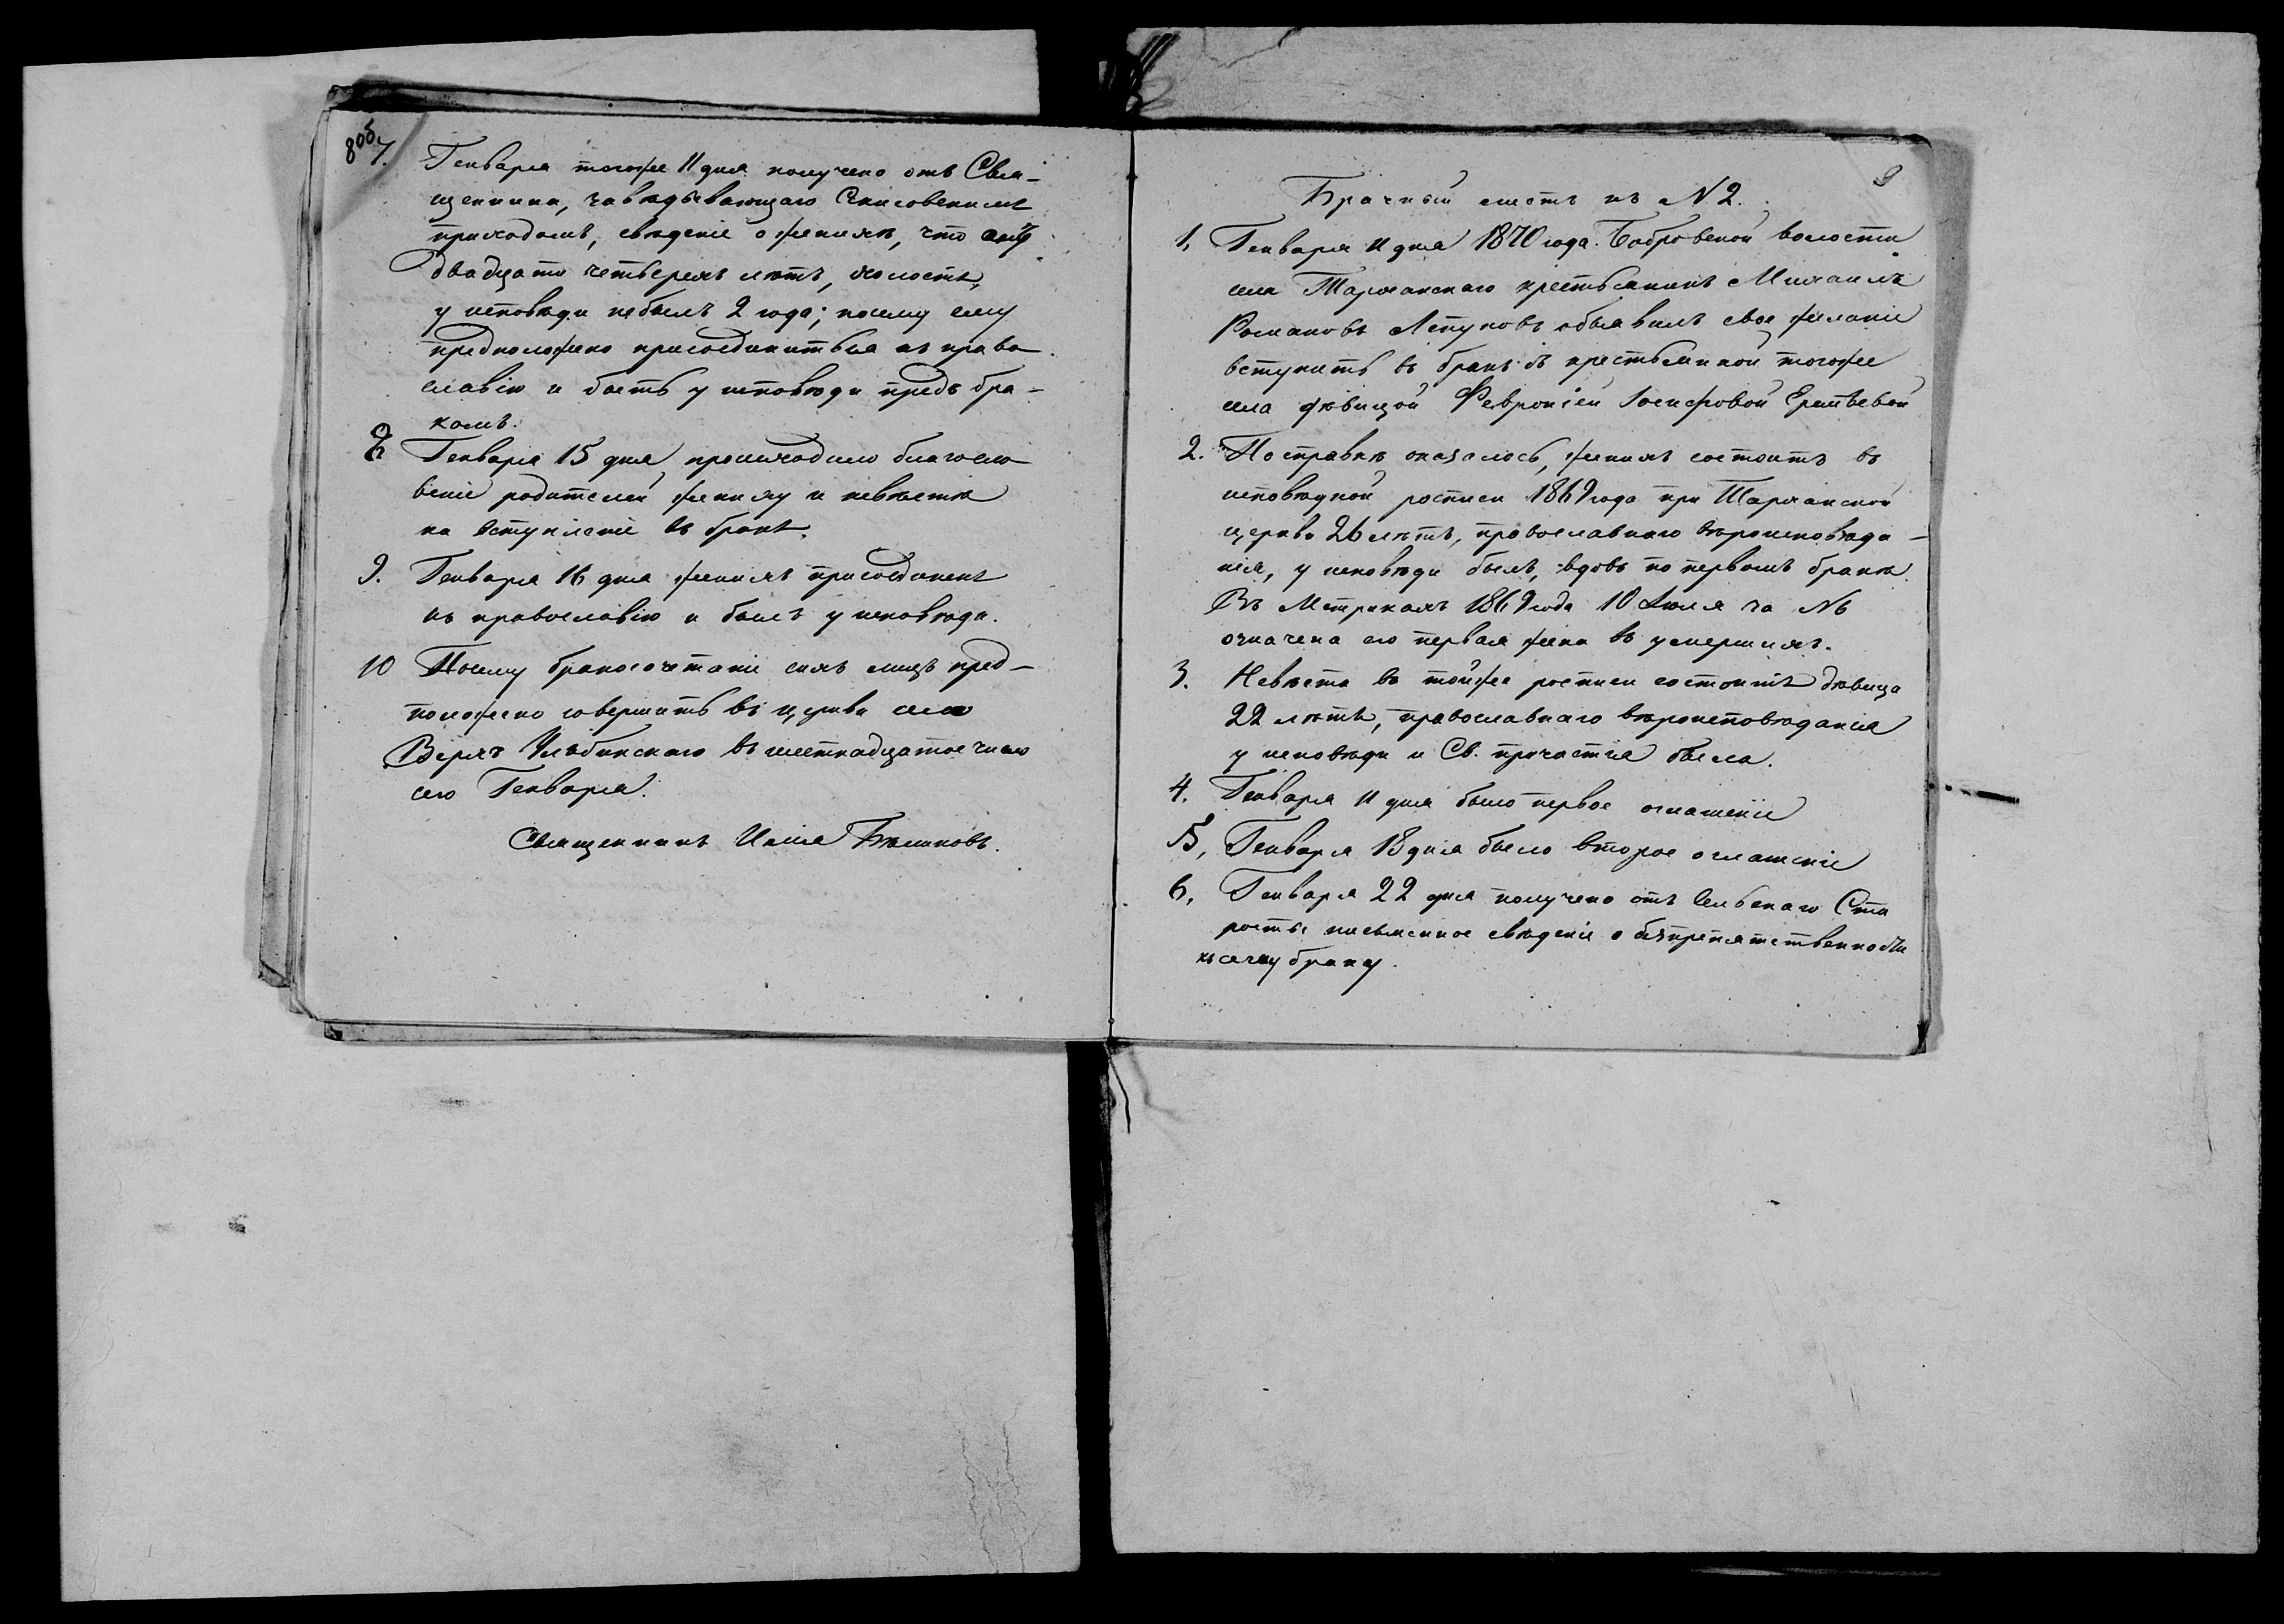 8 об
7. Генваря тогоже 11 дня получено отъ Свя-
щенника, завѣдывающаго
приходомъ, свѣденіе о женихѣ, что ему
двадцать четверехъ лѣтъ, холостъ,
у исповѣди небылъ 2 года; посему ему
предположено присоединиться къ право
славію и быть у исповѣди предъ бра-
комъ.
8 Генваря 15 дня происходило благосло
веніе родителей жениху и невѣстѣ
на вступленіе въ бракъ.
9. Генваря 16 дня женихъ присоединенъ
къ православію и былъ у исповѣди.
10 Посему бракосочетаніе сихъ лицъ пред-
положено совершить въ церкви села
Верхъ Ульбинскаго въ шестнадцатое число
сего Генваря.
Священникъ Илія Бѣликовъ.
9
Брачный листъ къ N 2.
1, Генваря 11 дня 1870 года. Бобровской волости
села Тарханскаго крестьянинъ Михаилъ
Романовъ объявилъ свое желаніе
вступить въ бракъ съ крестьянкой тогоже
села дѣвицой Февроніей Іосифовой
2. По справкѣ оказалось, женихъ состоитъ въ
исповѣдной росписи 1869 года при Тарханской
церкви 26 лѣтъ, православнаго вѣроисповѣда-
нія, у исповѣди былъ, вдовъ по первомъ бракѣ.
Въ Метрикахъ 1869 года 10 Іюля за N 6
означена его первая жена въ умершихъ.
3. Невѣста въ тойже росписи состоитъ дѣвица
22 лѣтъ, православнаго вѣроисповѣданія
у исповѣди и Св. причастія была.
4. Генваря 11 дня было первое оглашеніе
5, Генваря 18 дня было второе оглашеніе
6, Генваря 22 дня получено отъ Сельскаго Ста
росты письменное свѣденіе о безпрепятственности
къ сему браку.